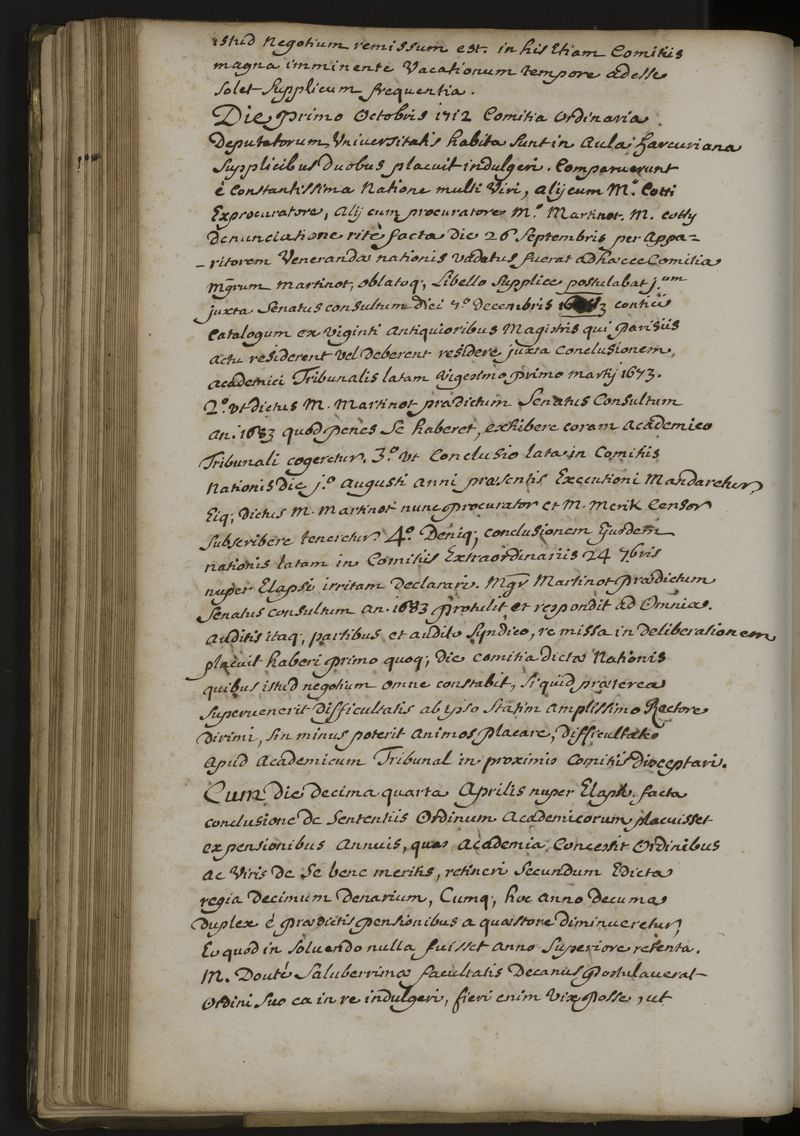 istud Negotium remissum est. in his Etiam Comitiis
magna imminente Vacationum tempore adesse
solet Supplicum frequentia.
Die Primo Octobris 1712 Comitia Ordinaria
Deputatorum Universitatis habita sunt in Aula harcuriana
Supplicibus duobus placuit indulgeri. Comparuerunt
è Constantissima Natione multi Viri, alij cum M.º Cotti
Exprocuratore, alij cum procuratore M.º Martinot. M. Cotty
denunciatione ritè facta die 26 Septembris per Appa=
-ritorem Venerandæ nationis vadatus fuerat ad hæcce Comitia
Mgrum Martinot, oblatoq; libello Supplice postulabat j.um
juxta Senatus consultum diei 7.ª decembris 1683 confici
Catalogum ex viginti antiquioribus Magistris qui Parisiis
actu residerent vel deberent residere juxta Conclusionem,
academici Tribunalis latam vigesimo primo martij 1673.
2.º ut dictus M. Martinot prædictum Senatus Consultum
an. 1683 quod penes Se haberet, exhibere coram Academico
Tribunali cogeretur. 3.º ut Conclusio lata in Comitiis
Nationis die j.º Augusti anni præsentis Executioni Mandaretur,
Eiq; dictus M. Martinot nunc procurator et M. Merik Censor
Subscribere teneretur. 4.º Deniq; conclusionem Ejusdem
nationis latam in Comitiis Extraordinariis 24 7bris
nuper Elapsi irritam declarari. Mgr Martinot prædictum
Senatus consultum an. 1683 protulit et respondit ad Omnia.
Auditis itaq; partibus et audito Syndico, re missa in deliberationem
placuit haberi primo quoq; die comitia dictæ Nationis
quibus istud negotium omne constabit, si quid præterea
Supervenerit difficultatis ab ipso statim amplissimo Rectore
dirimi, sin minus poterit animos placare, difficultates
apud Academicum Tribunal in proximis Comitiis disceptari.
Cum die decima quarta Aprilis nuper Elapsi facta
conclusione de Sententiis Ordinum Academicorum placuisset
ex pensionibus Annuis, quas Academia Concessit Ordinibus
ac Viris de Se bene meritis, retineri Secundum Edicta
regia Decimum Denarium, Cumq; hoc anno Decuma
duplex è prædictis pensionibus a quæstore diminueretur,
Eo quod in solvendo nulla fuisset anno Superiore retenta.
M. Douté Saluberrimæ facultatis Decanus Postulaverat
Ordini Suo ea in re indulgeri, fieri enim vix posse, ut